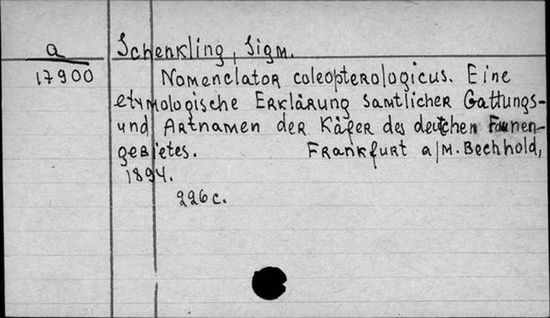 a Schenkling, Sigm.
17900 Nomenclator coleopterologicus. Eine
etymologische Erklärung samtlicher Gattungs-
und Artnamen der Käfer des deutchen Faunen-
gebietes. Frankfurt a/M. Bechhold,
1894.
226 c.